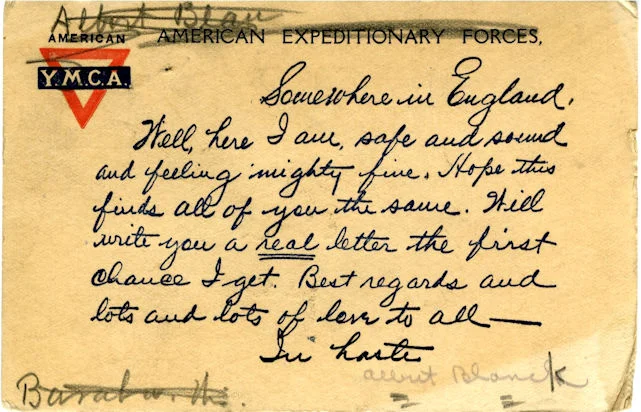 Albert Blan
AMERICAN
Y.M.C.A.
AMERICAN EXPEDITIONARY FORCES,
Somewhere in England.
Well, here I am, safe and sound
and feeling mighty fine. Hope this
finds all of you the same. Will
write you a real letter the first
chance I get. Best regards and
lots and lots of love to all —
In haste
Albert Blanck